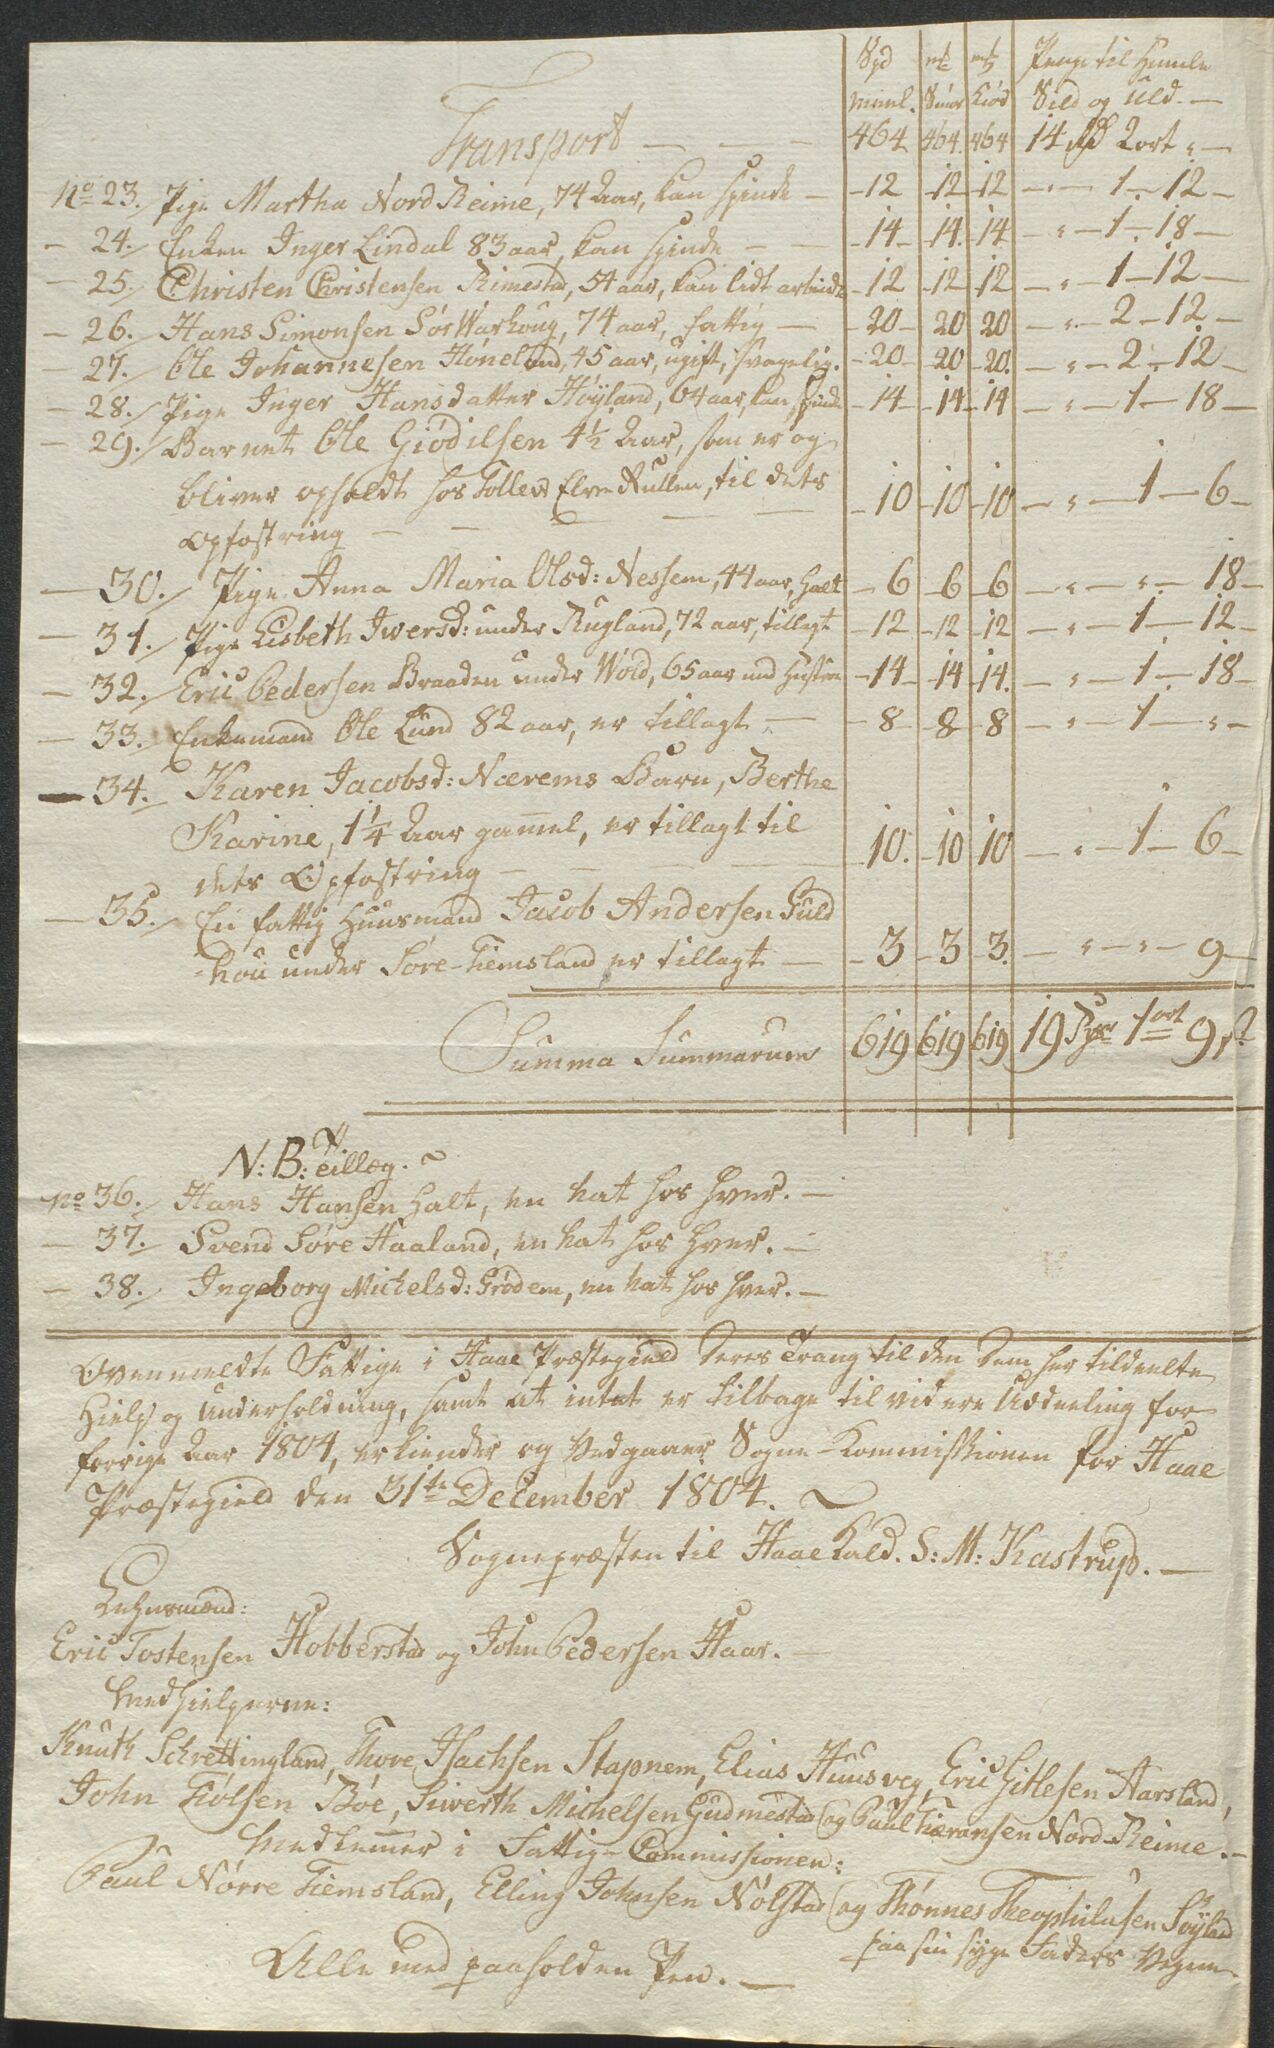 Spd | mk | mk | Penge til Humle
Meel. | Smør | Kiød | Sild og Uld. —
Transport — — — 464 464 464 14 rd 2 ort " —
No 23. Pige Martha Nord Reime, 74 Aar, kan spinde — 12 — 12 — 12 — " — 1 — 12 —
— 24. Enken Inger Lindal 83 aar, kan spinde — — 14 — 14 — 14 — " — 1 — 18 —
— 25. Christen Christensen Rimestad, 54 aar, kan lidt arbeide — 12 — 12 — 12 — " — 1 — 12 —
— 26. Hans Simonsen Sør Warhoug, 74 aar, fattig — 20 — 20 20 — " — 2 — 12 —
27. Ole Johannesen Høneland, 45 aar, ugift, svagelig. — 20 — 20 — 20. — " — 2 — 12 —
— 28. Pige Inger Hansdatter Høyland, 64 aar, kan spinde — 14 — 14 — 14 — " — 1 — 18 —
— 29. Barnet Ole Giødilsen 4½ Aar, som er og
bliver opholdt hos Tollev Elve Rullen, til dets
Opfostring — — — — — 10 — 10 — 10 — " — 1 — 6 —
— 30. Pige Anna Maria Olsd: Nessem, 44 aar, halt — 6 — 6 — 6 — " — " — 18 —
— 31. Pige Lisbeth Iwersd: under Rugland, 72 aar, tillagt — 12 — 12 — 12 — " — 1 — 12 —
— 32. Eric Pedersen Braaden under Wold, 65 aar med Hustrue — 14 — 14 — 14. — " — 1 — 18 —
— 33. Enkemand Ole Lund 82 aar, er tillagt — — 8 — 8 — 8 — " — 1 — " —
— 34. Karen Jacobsd: Nærems Barn, Berthe
Karine, 1¼ Aar gammel, er tillagt til
dets Opfostring — — — — 10. — 10 10 — " — 1 — 6 —
— 35. En fattig Huusmand Jacob Andersen Guld
-hou under Søre-Tiemsland er tillagt — — 3 — 3 — 3. — " — " — 9 —
Summa Summarum 619 619 619 19 Spr 1 ort 9 s
N: B: Tillæg. ~
No 36. Hans Hansen halt, en hat hos hver. —
— 37. Svend Søre Haaland, en hat hos hver. —
— 38. Ingeborg Michelsd: Grødem, en hat hos hver. —
Ovenmeldte Fattige i Haae Præstegield Deres Trang til den dem her tildeelte
Hielp og Underholdning, samt at intet er tilbage til videre Uddeeling for
forrige Aar 1804, erkiender og vedgaaer Sogne-Kommissionen for Haae
Præstegield den 31te December 1804. ~
Sognepræsten til Haae Kald. S: M: Kastrup. —
Lehnsmænd:
Eric Tostensen Hobberstad og John Pedersen Haar. —
Medhielperne:
Knuth Schrettingland, Thore Isachsen Stapnem, Elias Huusveg, Eric Gitlesen Aarsland,
John Tiølsen Bøe, Siwerth Michelsen Gudmestad og Paul Tiæransen Nord-Reime. —
Medlemmer i Fattig-Commissionen:
Paul Nørre Tiemsland, Elling Johnsen Nølstad og Thønnes Theophilusen Søyland
paa sin syge Faders Vegne.
Alle med paaholden Pen. —